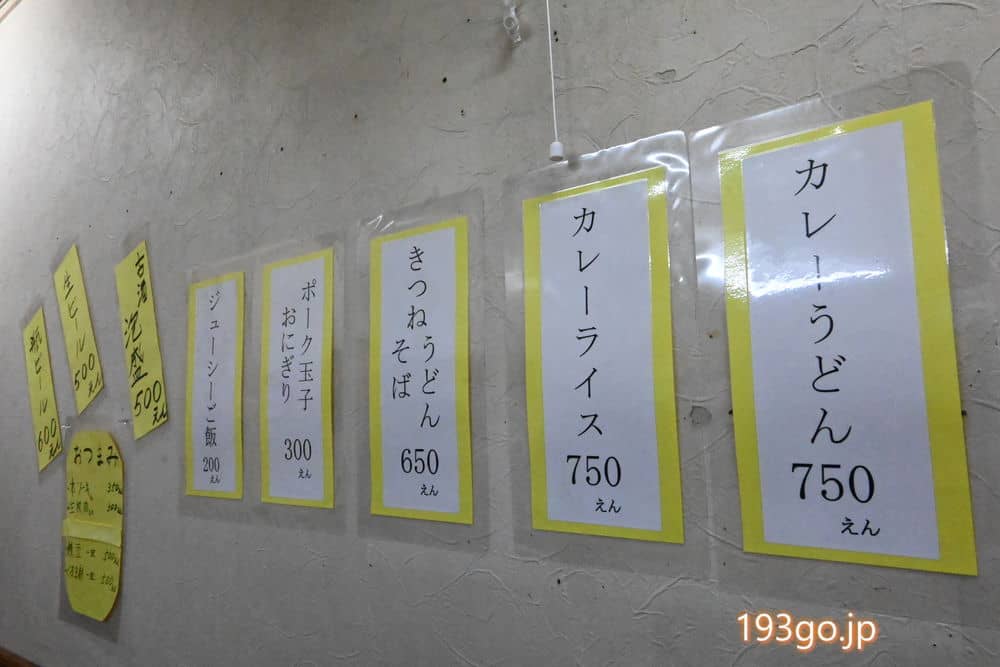 カレーうどん
750
えん
カレーライス
750
えん
きつねうどん
そば
650
えん
ポーク玉子
おにぎり
300
えん
ジューシーご飯
200
えん
古酒泡盛500えん
生ビール500えん
瓶ビール600えん
おつまみ
193go.jp